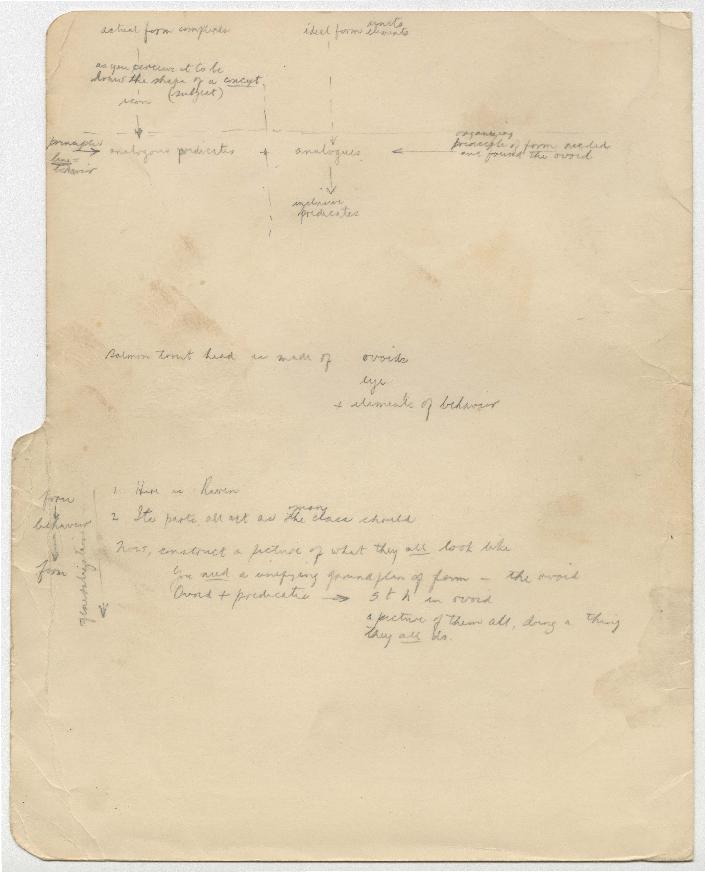 actual form complexes
ideal form elements
as you perceive it to be
draw the shape of a concept
(subject)
icon
principles
line =
behavior
analogous predicates + analogues
organizing
principle of form needed
and found the ovoid
inclusive
predicates
Salmon trout head is made of ovoids
eye
+ elements of behavior
1. Here is Raven
many
2. Its parts all act as the class should
Now, construct a picture of what they all look like
You need a unifying groundplan of form – the ovoid
Ovoid + predicates → in ovoid
a picture of them all, doing a thing
they all do.
from
behaviour
form